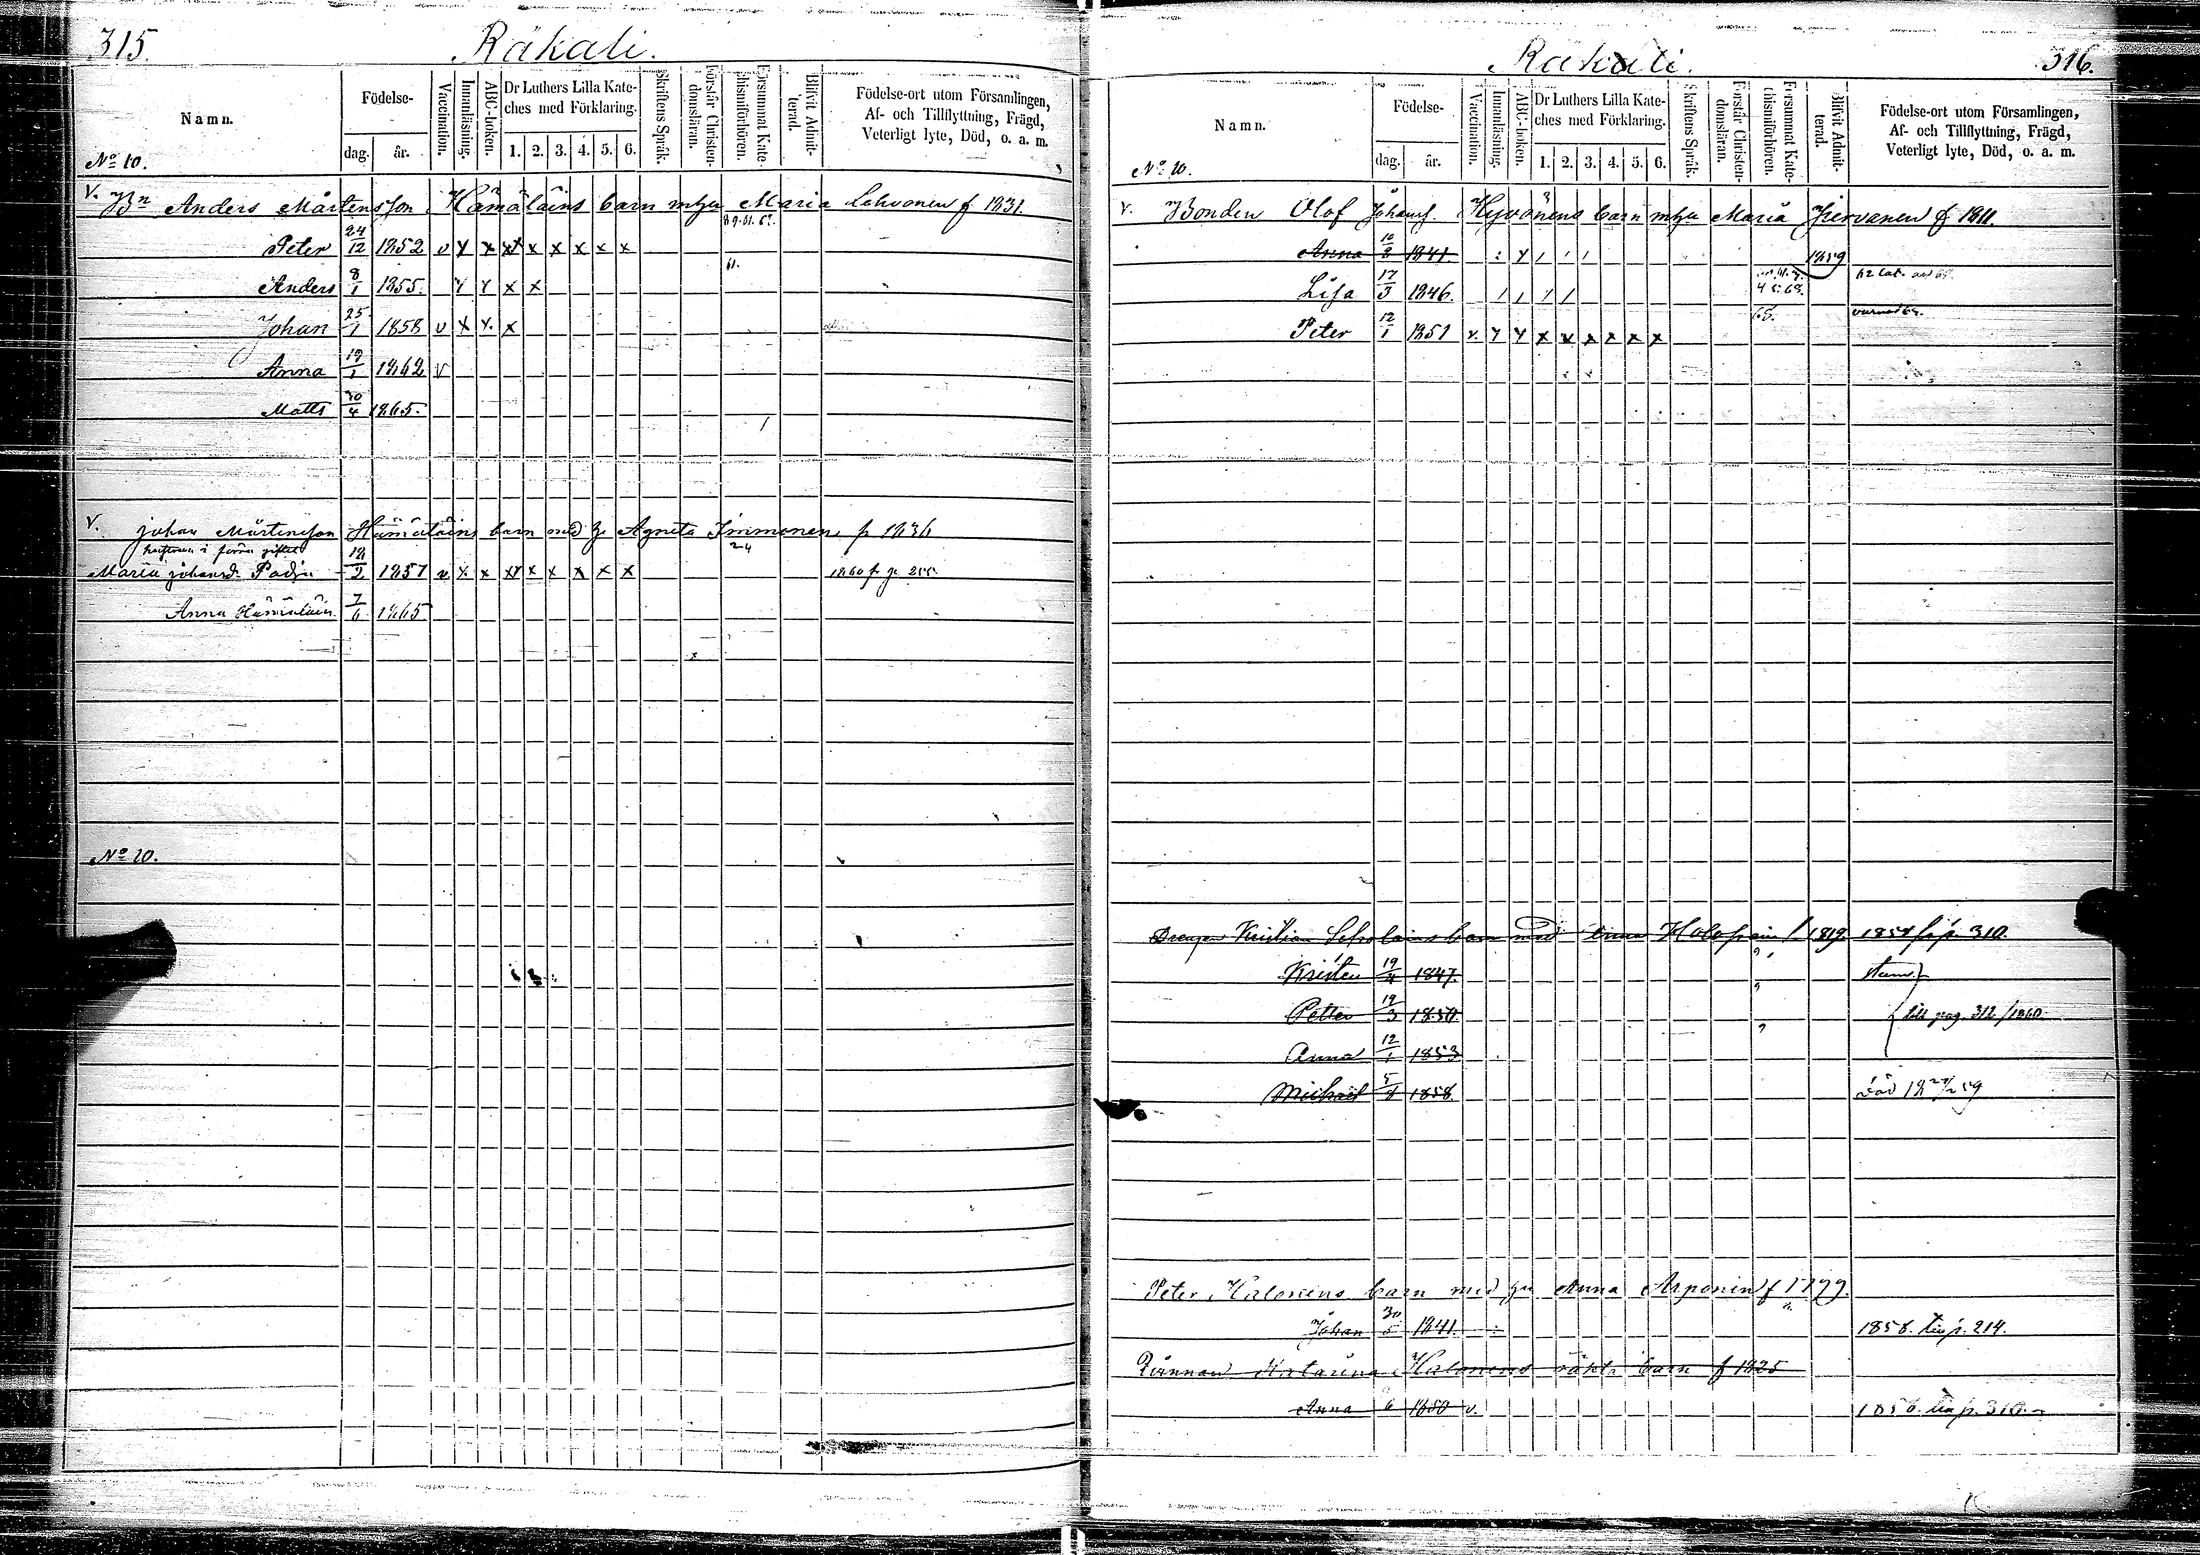 315.
Räkali.
Namn.
Födelse-
dag.
år.
Vaccination.
Innanläsning.
ABC-boken.
Dr Luthers Lilla Kate-
ches med Förklaring.
1. 2. 3. 4. 5. 6.
Skriftens Språk.
Förstår Christen-
domsläran.
Försummat Kate-
chismiförhören.
Blifvit Admit-
terad.
Födelse-ort utom Församlingen,
Af- och Tillflyttning, Frägd,
Veterligt lyte, Död, o. a. m.
No 10.
v. Bn Anders Mårtensson Hämäläins barn m hu Maria Lehvonen f 1831.
Peter 24/12 1852 v x x x x x x x x
Anders 8/1 1855. x x x x 61.
Johan 25/1 1858 v x x. x
Anna 19/1 1862 v
Matts 30/4 1865.
v. Johan Mårtensson Hämäläins barn med hu Agneta Immonen f 1836
hustruns i förra giftet 24
Maria Johansdr 1857 v x x x x x x x x 1860 fr p. 255.
Anna Hämäläin. 7/6 1865
No 20.
Räkali.
316.
Namn.
Födelse-
dag.
år.
Vaccination.
Innanläsning.
ABC-boken.
Dr Luthers Lilla Kate-
ches med Förklaring.
1. 2. 3. 4. 5. 6.
Skriftens Språk.
Förstår Christen-
domsläran.
Försummat Kate-
chismiförhören.
Blifvit Admit-
terad.
Födelse-ort utom Församlingen,
Af- och Tillflyttning, Frägd,
Veterligt lyte, Död, o. a. m.
No 20.
v. Bonden Olof Johansf. Hyvönens barn m hu Maria f 1811.
Anna 1841. 1859
Lisa 17/3 1846.
Peter 12/1 1851 v. x x x x x x x x 68.
Drengen Kristian barn med Anna Holopain f. 1819. 1854 fr p. 310.
Kristen 19/4 1847.
Petter 19/3 1850. till pag. 312/1860.
Anna 12/1 1853
Michael 5/8 1858. Död 18 59
Peter Halonens barn med hu Anna Arponin f 1799.
Johan 30/5 1841. 1858. till p. 214.
Qvinnan Katarina Halonens oäkta barn f 1825
Anna 6 1850 v. 1858. till p. 310.